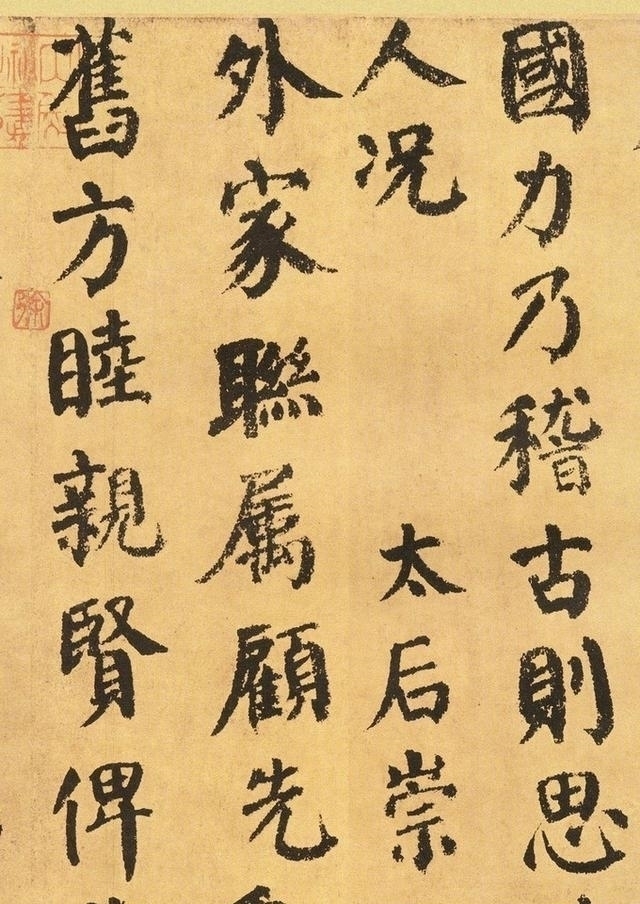 國力乃稽古則思
人况 太后崇
外家聯属顧先
舊方睦親賢俾